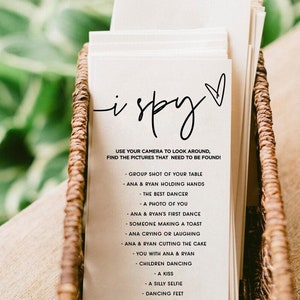 i spy
USE YOUR CAMERA TO LOOK AROUND,
FIND THE PICTURES THAT NEED TO BE FOUND!
- GROUP SHOT OF YOUR TABLE
- ANA & RYAN HOLDING HANDS
- THE BEST DANCER
- A PHOTO OF YOU
- ANA & RYAN'S FIRST DANCE
- SOMEONE MAKING A TOAST
- ANA CRYING OR LAUGHING
- ANA & RYAN CUTTING THE CAKE
- YOU WITH ANA & RYAN
- CHILDREN DANCING
- A KISS
- A SILLY SELFIE
- DANCING FEET